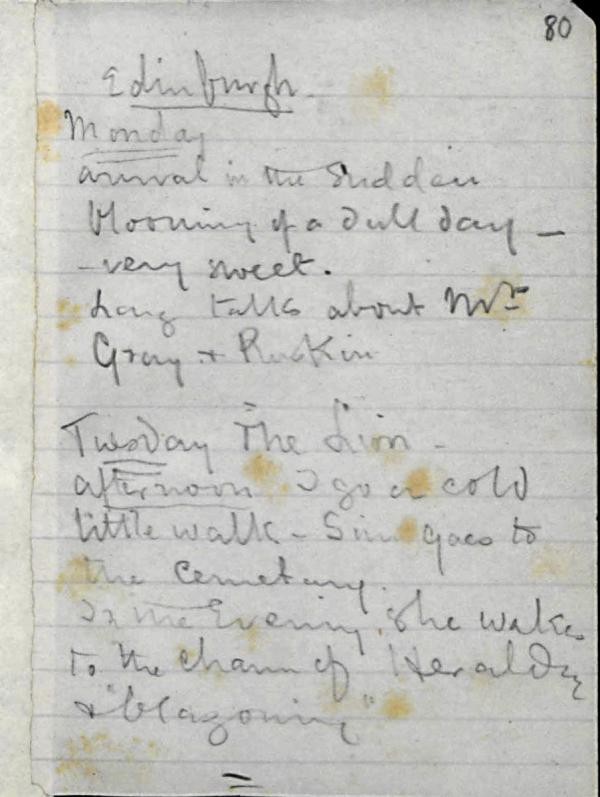 80
Edinburgh.
Monday
arrival in the sudden
blooming of a dull day —
– very sweet.
Long talks about Mr
Gray + Ruskin
Tuesday The Lion –
afternoon I go a cold
little walk – Sim goes to
the cemetary.
In the Evening. She wakes
to the charm of Heraldry
+ "blazoning"